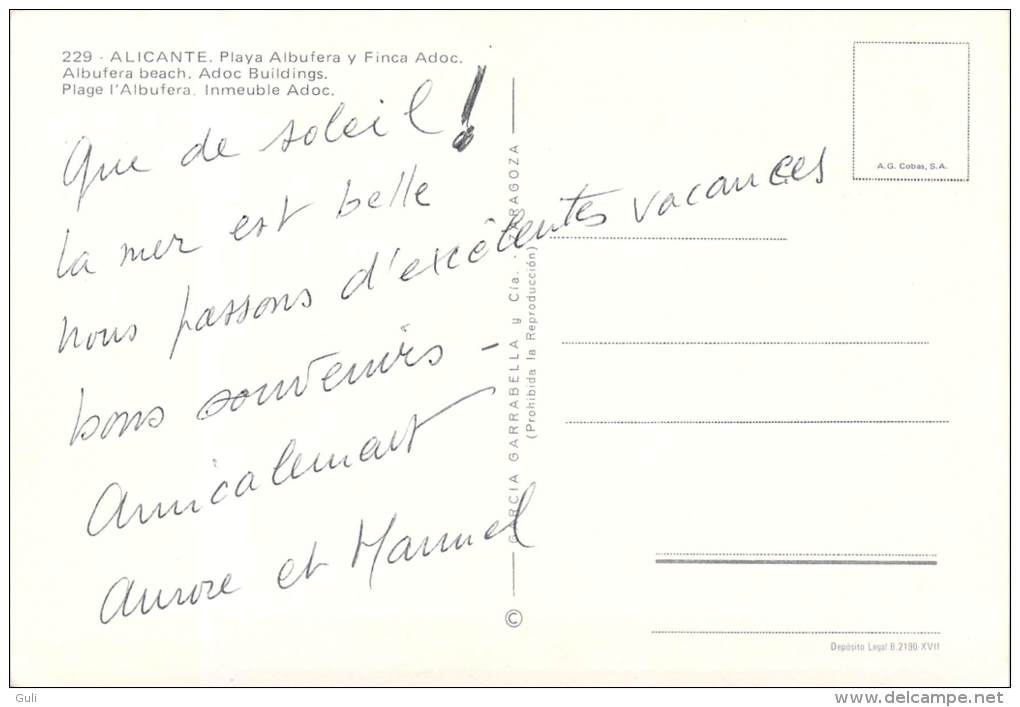 229 - ALICANTE. Playa Albufera y Finca Adoc.
Albufera beach. Adoc Buildings.
Plage l'Albufera. Inmeuble Adoc.
que de soleil !
la mer est belle
nous passons d'excèlentes vacances
bons souvenirs -
Amicalement
Aurore et Manuel
GARCIA GARRABELLA y Cía. - ZARAGOZA
(Prohibida la Reproducción)
©
A.G. Cobas, S.A.
Depósito Legal B.2190-XVII
Guli
delcampe.net